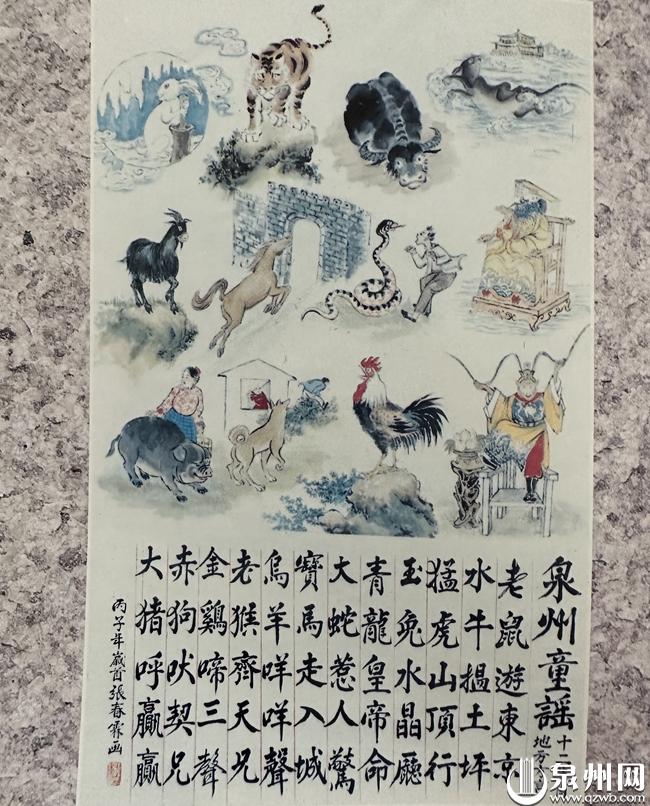 泉州童謡
地方
老鼠遊東京
水牛揾土坪
猛虎山頂行
玉兔水晶廳
青龍皇帝命
大蛇惹人驚
寶馬走入城
烏羊咩咩聲
老猴齊天兄
金鷄啼三聲
赤狗吠契兄
大猪呼贏贏
丙子年歲首張春霖画
泉州网
www.qzwb.com